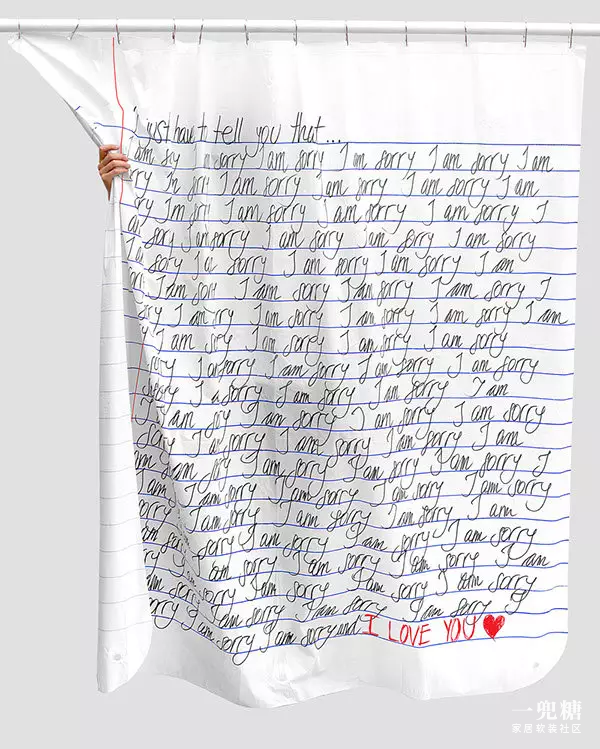 I just have to tell you that...
am sorry I am sorry I am sorry I am sorry I am
I am sorry I am sorry I am sorry I am
sorry I am sorry I am sorry I am sorry I
am sorry I am sorry I am sorry I am sorry I am sorry
I am sorry I am sorry I am sorry I am
I am sorry I am sorry I am sorry I am sorry I
sorry I am sorry I am sorry I am sorry I am sorry I am
I am sorry I am sorry I am sorry I am sorry
sorry I am sorry I am sorry I am sorry I am sorry
sorry I am sorry I am sorry I am sorry I am
I am sorry I am sorry I am sorry I am sorry
sorry I am sorry I am sorry I am sorry I am
I am sorry I am sorry I am sorry I am sorry I
I am sorry I am sorry I am sorry I am sorry
I am sorry I am sorry I am sorry I am
sorry I am sorry I am sorry I am sorry
sorry I am sorry I am sorry I am sorry I am
sorry I am sorry I am sorry I am sorry
sorry I am sorry I am sorry I am sorry I
am sorry I am sorry and I LOVE YOU
一兜糖
家居软装社区